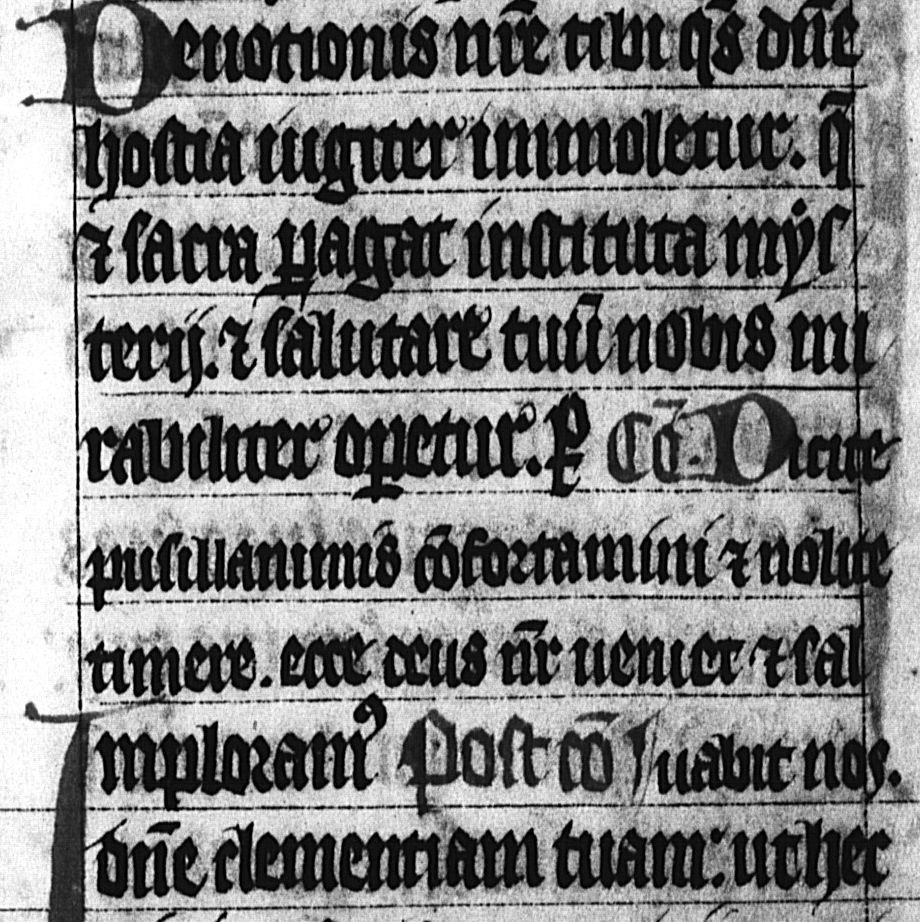 Deuotionis nr̄e tibi qs̄ dn̄e
hostia iugiter immoletur. q̄
⁊ sacra ꝑagat instituta mẏs
terij. ⁊ salutare tuū nobis mi
rabiliter oꝑetur. P Cō. Dicite
pusillanimis cōfortamini ⁊ nolite
timere. ecce deus nr̄ ueniet ⁊ sal
Imploramꝰ Post cō uabit nos.
dn̄e clementiam tuam: ut hec